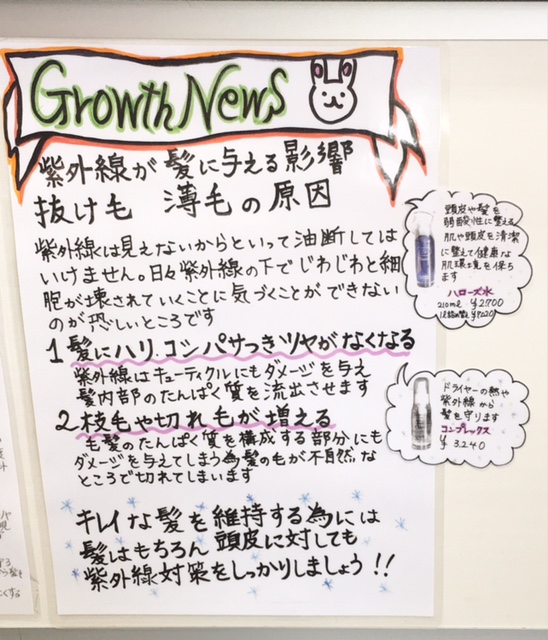 Growth News
紫外線が髪に与える影響
抜け毛 薄毛の原因
紫外線は見えないからといって油断しては
いけません。日々紫外線の下でじわじわと細
胞が壊されていくことに気づくことができない
のが恐しいところです
1 髪にハリ.コシ パサつきツヤがなくなる
紫外線はキューティクルにもダメージを与え
髪内部のたんぱく質を流出させます
2.枝毛や切れ毛が増える
も髪のたんぱく質を構成する部分にも
ダメージを与えてしまう為髪の毛が不自然な
ところで切れてしまいます
キレイな髪を維持する為には
髪はもちろん 頭皮に対しても
紫外線対策をしっかりしましょう!!
頭皮や髪を
弱酸性に整える
肌や頭皮を清潔
に整えて健康な
肌環境を保ち
ます
ハローズ水
210ml ¥2700
ドライヤーの熱や
紫外線から
髪を守ります
コンプレックス
¥3240